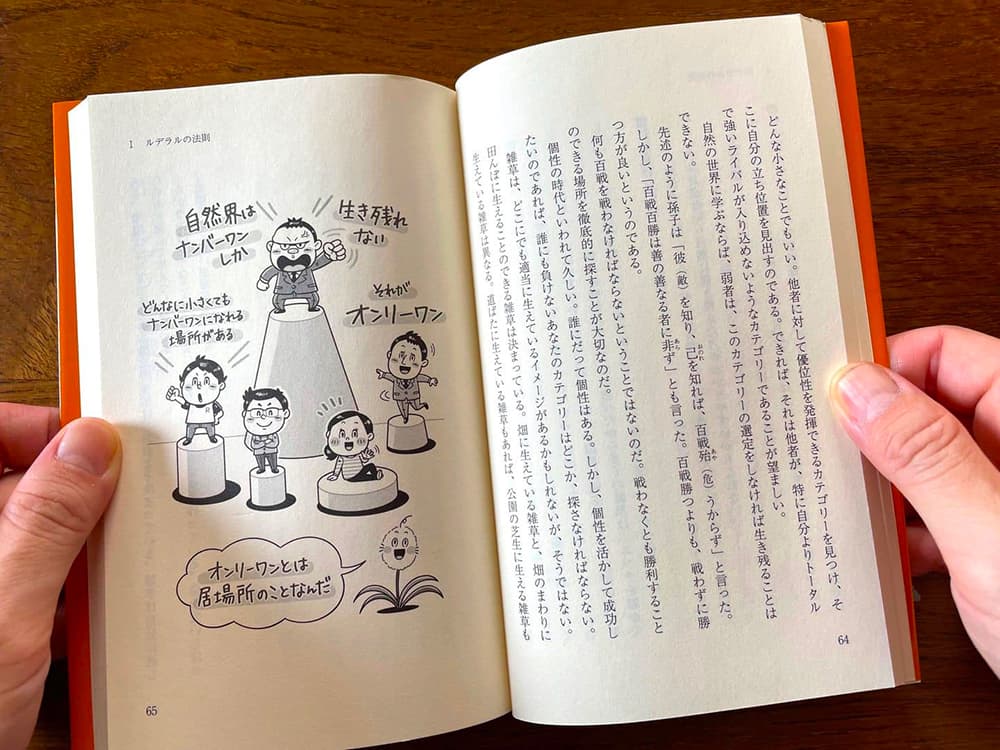 どんな小さなことでもいい。他者に対して優位性を発揮できるカテゴリーを見つけ、そ
こに自分の立ち位置を見出すのである。できれば、それは他者が、特に自分よりトータル
で強いライバルが入り込めないようなカテゴリーであることが望ましい。
自然の世界に学ぶならば、弱者は、このカテゴリーの選定をしなければ生き残ることは
できない。
先述のように孫子は「彼（敵）を知り、己を知れば、百戦殆（危）うからず」と言った。
おのれ
あや
しかし、「百戦百勝は善の善なる者に非ず」とも言った。百戦勝つよりも、戦わずに勝
あら
つ方が良いというのである。
何も百戦を戦わなければならないということではないのだ。戦わなくとも勝利すること
のできる場所を徹底的に探すことが大切なのだ。
個性の時代といわれて久しい。誰にだって個性はある。しかし、個性を活かして成功し
たいのであれば、誰にも負けないあなたのカテゴリーはどこか、探さなければならない。
雑草は、どこにでも適当に生えているイメージがあるかもしれないが、そうではない。
田んぼに生えることのできる雑草は決まっている。畑に生えている雑草と、畑のまわりに
生えている雑草は異なる。道ばたに生えている雑草もあれば、公園の芝生に生える雑草も
64
Ⅰ ルデラルの法則
自然界は
ナンバーワン
しか
生き残れ
ない
どんなに小さくても
ナンバーワンになれる
場所がある
それが
オンリーワン
オンリーワンとは
居場所のことなんだ
65